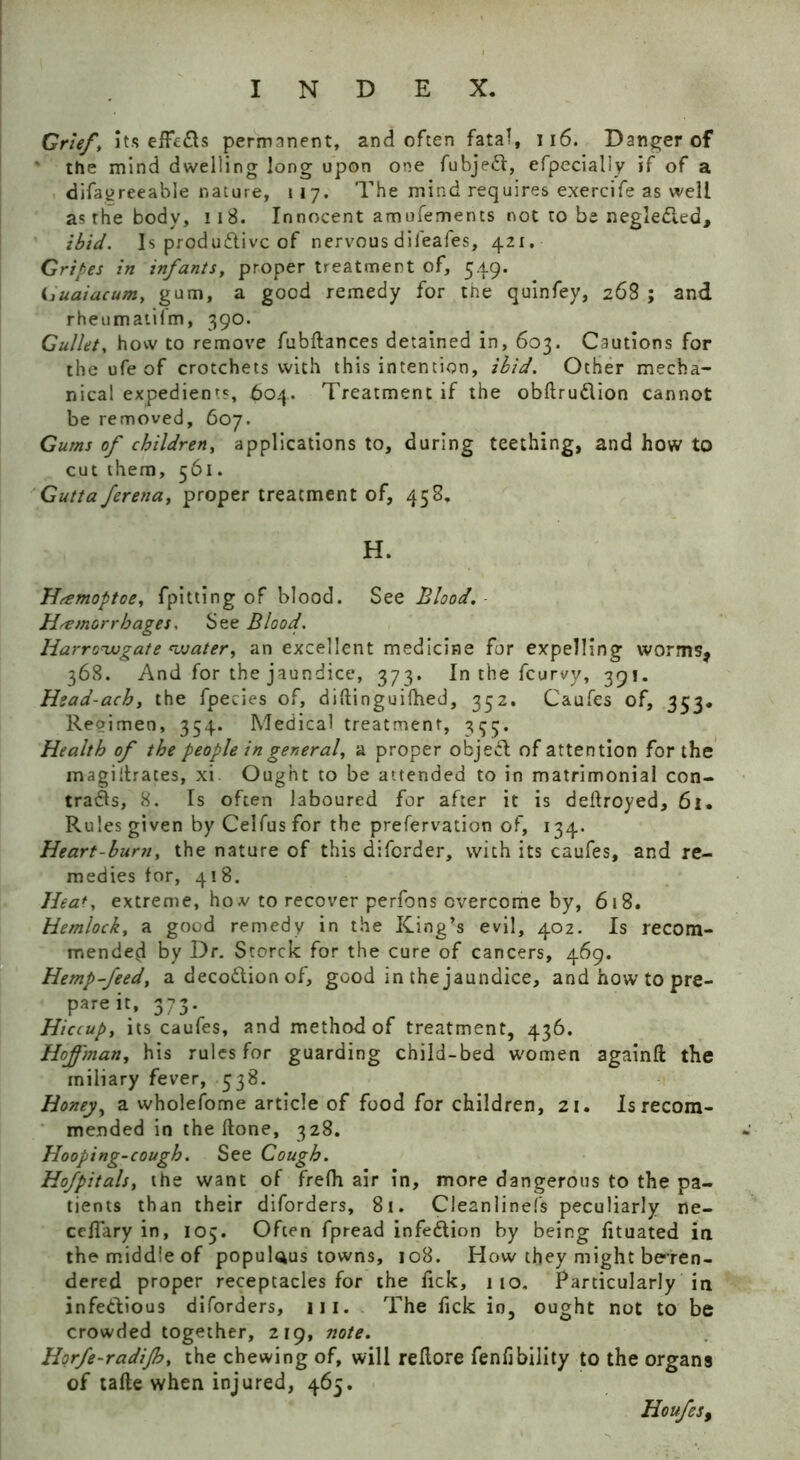 INDEX.
Grief, its effects permanent, and often fatal, 116. Danger of
the mind dwelling long upon one ſubject, eſpecially if of a
diſagreeable nature, 117. The mind requires exerciſe as well
as the body, 118. Innocent amuſements not to be neglected,
ibid. Is productive of nervous diſeaſes, 421.
Gripes in infants, proper treatment of, 549.
Guaiacum, gum, a good remedy for the quinſey, 268; and
rheumatiſm, 390.
Gullet, how to remove ſubſtances detained in, 603. Cautions for
the uſe of crotchets with this intention, ibid. Other mecha-
nical expedients, 604. Treatment if the obſtruction cannot
be removed, 607.
Gums of children, applications to, during teething, and how to
cut them, 561.
Gutta ſerena, proper treatment of, 458.
H.
Hæmoptoe, ſpitting of blood. See Blood.
Hæmorrhages. See Blood.
Harrowgate water, an excellent medicine for expelling worms,
368. And for the jaundice, 373. In the ſcurvy, 391.
Head-ach, the ſpecies of, diſtinguiſhed, 352. Cauſes of, 353.
Regimen, 354. Medical treatment, 355.
Health of the people in general, a proper object of attention for the
magiſtrates, xi. Ought to be attended to in matrimonial con-
tracts, 8. Is often laboured for after it is deſtroyed, 61.
Rules given by Celſus for the preſervation of, 134.
Heart-burn, the nature of this diſorder, with its cauſes, and re-
medies for, 418.
Heat, extreme, how to recover perſons overcome by, 618.
Hemlock, a good remedy in the King's evil, 402. Is recom-
mended by Dr. Storck for the cure of cancers, 469.
Hemp-ſeed, a decoction of, good in the jaundice, and how to pre-
pare it, 373.
Hiccup, its cauſes, and method of treatment, 436.
Hoffman, his rules for guarding child-bed women againſt the
miliary fever, 538.
Honey, a wholeſome article of food for children, 21. Is recom-
mended in the ſtone, 328.
Hooping-cough. See Cough.
Hoſpitals, the want of freſh air in, more dangerous to the pa-
tients than their diſorders, 81. Cleanlineſs peculiarly ne-
ceſſary in, 105. Often ſpread infection by being ſituated in
the middle of populous towns, 108. How they might be ren-
dered proper receptacles for the ſick, 110. Particularly in
infectious diſorders, 111. The ſick in, ought not to be
crowded together, 219, note.
Horſe-radiſh, the chewing of, will reſtore ſenſibility to the organs
of taſte when injured, 465.
Houſes,